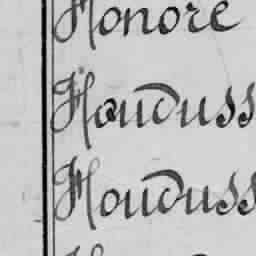 Honoré
Houduss
Houduss